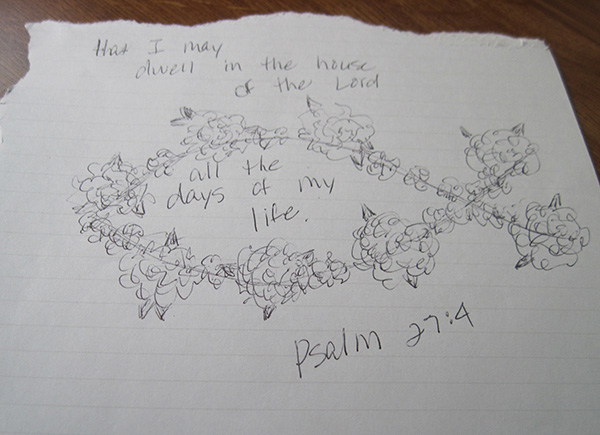 that I may
dwell in the house
of the Lord
all the
days of my
life.
Psalm 27:4